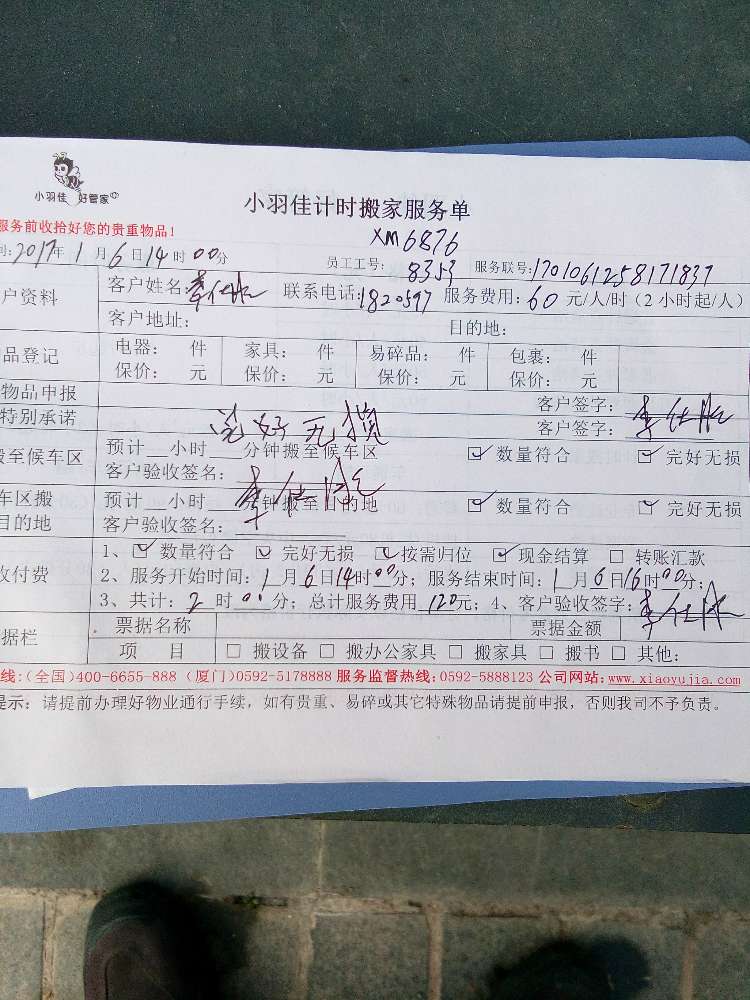 小羽佳 好管家
小羽佳计时搬家服务单
服务前收拾好您的贵重物品!
XM6876
间:2017年1月6日14时00分 员工工号:8353 服务联号:1701061258171837
户资料 客户姓名: 联系电话:1820597 服务费用:60元/人/时(2小时起/人)
客户地址: 目的地:
品登记 电器: 件 家具: 件 易碎品: 件 包裹: 件
保价: 元 保价: 元 保价: 元 保价: 元
物品申报 客户签字:
特别承诺 完好无损 客户签字:
搬至候车区 预计__小时__分钟搬至候车区 ☑数量符合 ☑完好无损
客户验收签名:
车区搬 预计__小时__分钟搬至目的地 ☑数量符合 ☑完好无损
目的地 客户验收签名:
收付费 1、☑数量符合 ☑完好无损 ☑按需归位 ☑现金结算 □转账汇款
2、服务开始时间:1月6日14时00分;服务结束时间:1月6日16时00分;
3、共计:2时00分;总计服务费用120元;4、客户验收签字:
据栏 票据名称 票据金额
项 目 □搬设备 □搬办公家具 □搬家具 □搬书 □其他:
线:(全国)400-6655-888 (厦门)0592-5178888 服务监督热线:0592-5888123 公司网站:www.xiaoyujia.com
提示:请提前办理好物业通行手续,如有贵重、易碎或其它特殊物品请提前申报,否则我司不予负责。